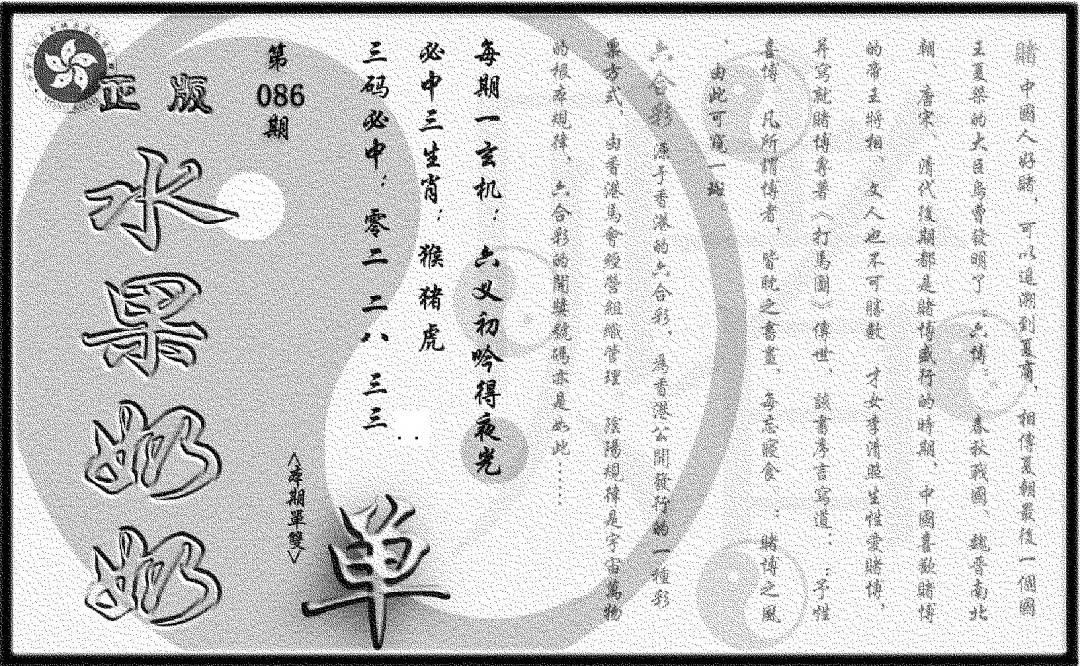 賭中國人好賭，可以追溯到夏商，相傳夏朝最後一個國
王夏桀的大臣烏曹發明了：六博。 春秋戰國、魏晉南北
朝、唐宋、清代後期都是賭博盛行的時期、中國喜歡賭博
的帝王將相 文人也不可勝數 才女李清照生性愛賭博，
并寫就賭博專著〈打馬圖〉傳世、該書序言寫道：：予性
喜博 凡所謂博者，皆耽之晝，每忘寢食 ：賭博之風
、由此可窺一斑
六合彩 源于香港的六合彩、爲香港公開發行的一種彩
票方式，由香港馬會經營組織管理 陰陽規律是宇宙萬物
的根本規律，六合彩的開獎號碼亦是如此……
每期一玄机：六爻初吟得夜光
必中三生肖：猴猪虎
三码必中：零二 二八 三三
第086期
正版
水果奶奶
<本期單雙>
单